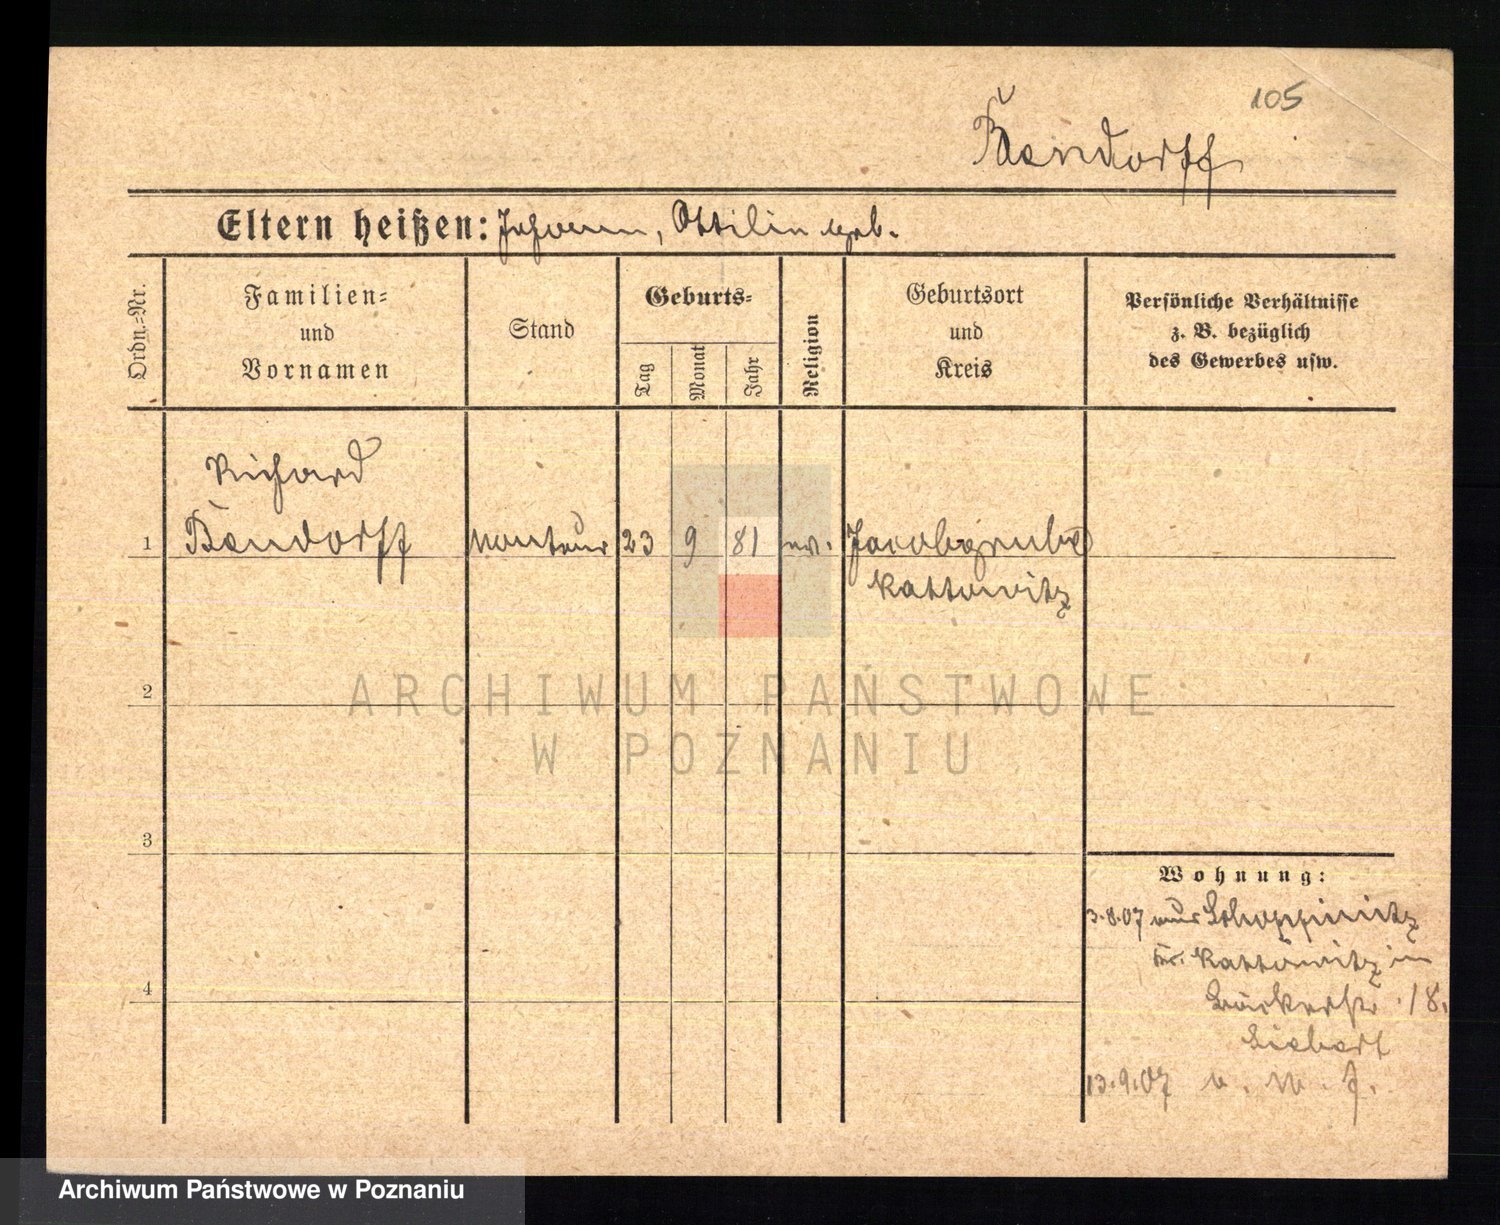 105
Bendorff
Eltern heißen: Johann, Ottilie geb.
Ordn.-Nr.
Familien-
und
Vornamen
Stand
Geburts-
Tag
Monat
Jahr
Religion
Geburtsort
und
Kreis
Persönliche Verhältnisse
z. B. bezüglich
des Gewerbes usw.
Richard
1 Bendorff Monteur 23 9 81 ev. Jacobsgrube
Kattowitz
2
3
4
Wohnung:
3.8.07 aus Schoppinitz
Kr. Kattowitz in
Bäckerstr. 18.
Siebert
13.9.07
ARCHIWUM PAŃSTWOWE
W POZNANIU
Archiwum Państwowe w Poznaniu